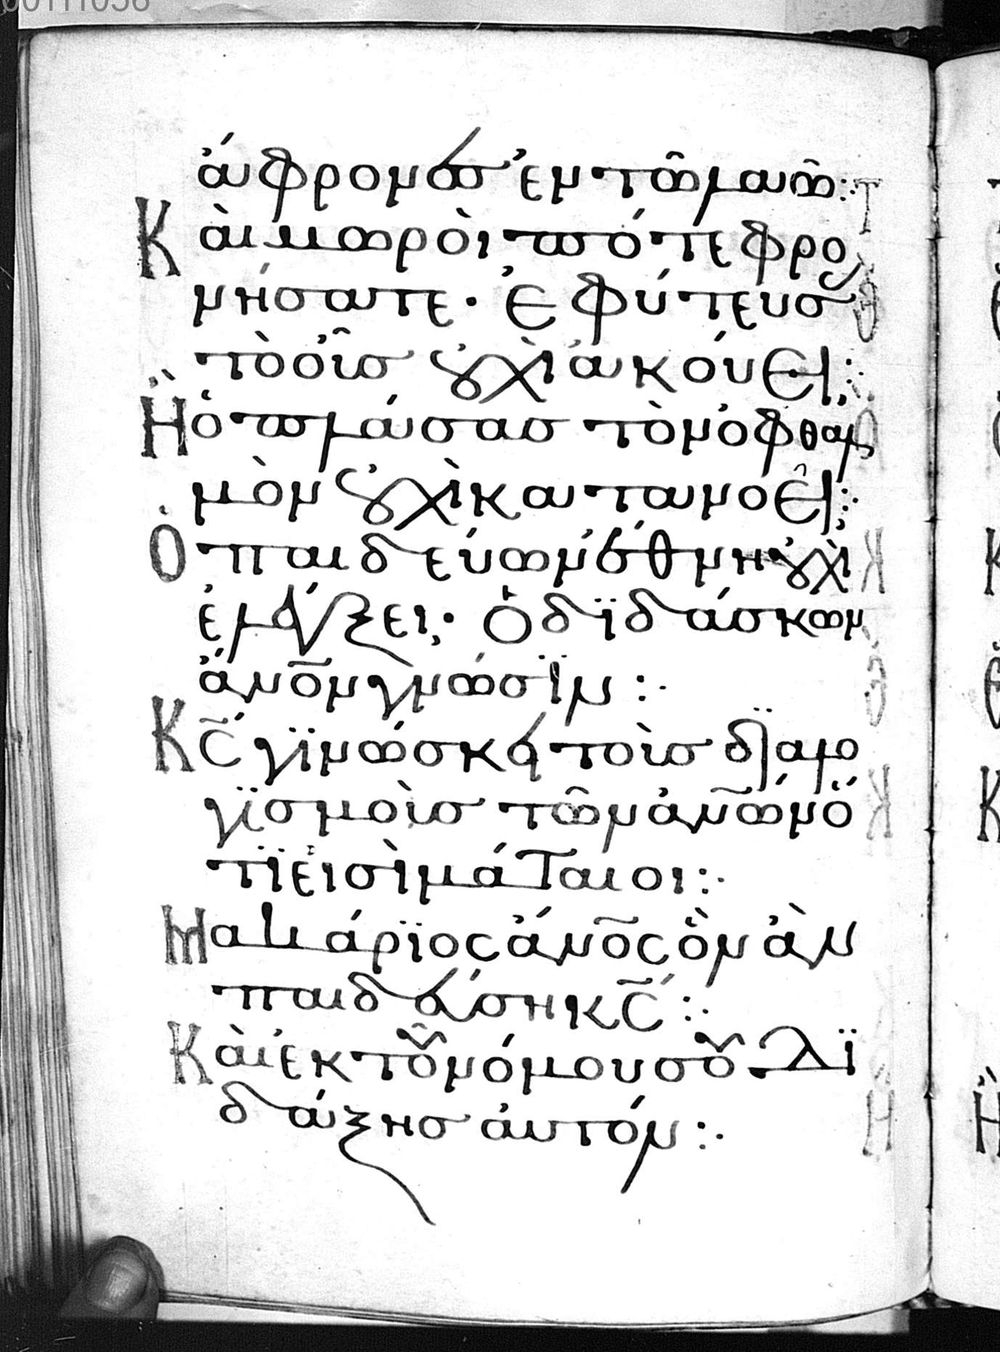 00111058
ἄφρονες ἐν τῷ λαῷ:·
Καὶ μωροὶ ποτὲ φρο
νήσατε · Ὁ φυτεύσ
τὸ οὖς οὐχὶ ἀκούει;
Ἢ ὁ πλάσας τὸν ὀφθαλ
μὸν οὐχὶ κατανοεῖ;
Ὁ παιδεύων ἔθνη οὐχὶ
ἐλέγξει; Ὁ διδάσκων
ἄνο̅ν γνῶσϊν :·
Κς̅ γϊνώσκει τοὺς δϊαλο
γϊσμοὺς τῶν ἀνω̅ν ὅ
τϊ εἰσὶ μάταιοι :·
Μακάρϊος ἄνο̅ς ὃν ἂν
παιδεύσῃ κε̅ :·
Καὶ ἐκ τοῦ νόμου σοῦ δϊ
δάξῃς αὐτόν :·